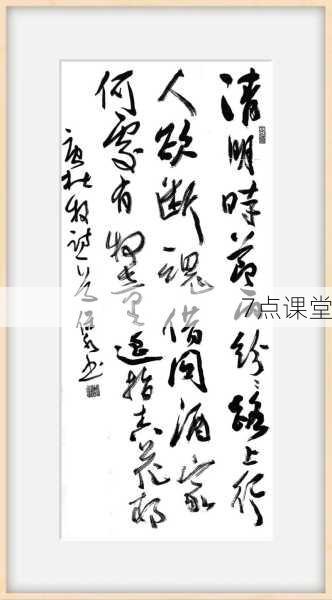 清明時節雨紛紛路上行
人欲断魂借問酒家
何處有牧童遥指杏花村
唐杜牧詩
7点课堂